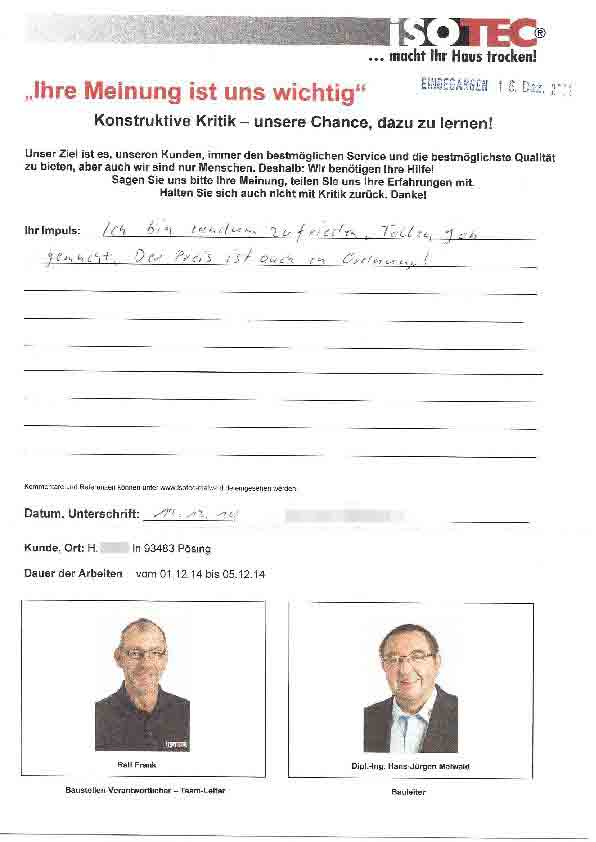 iSOTEC®
... macht Ihr Haus trocken!
„Ihre Meinung ist uns wichtig“
EINGEGANGEN 1 6. Dez.
Konstruktive Kritik – unsere Chance, dazu zu lernen!
Unser Ziel ist es, unseren Kunden, immer den bestmöglichen Service und die bestmöglichste Qualität
zu bieten, aber auch wir sind nur Menschen. Deshalb: Wir benötigen Ihre Hilfe!
Sagen Sie uns bitte Ihre Meinung, teilen Sie uns Ihre Erfahrungen mit.
Halten Sie sich auch nicht mit Kritik zurück. Danke!
Ihr Impuls: Ich bin rundum zufrieden. Toller Job
gemacht. Der Preis ist auch in Ordnung!
Kommentare und Referenzen können unter eingesehen werden
Datum, Unterschrift: 12.14
Kunde, Ort: H. in 93483 Pösing
Dauer der Arbeiten vom 01.12.14 bis 05.12.14
iSOTEC
Ralf Frank
Dipl.-Ing. Hans-Jürgen Meiwald
Baustellen-Verantwortlicher – Team-Leiter
Bauleiter